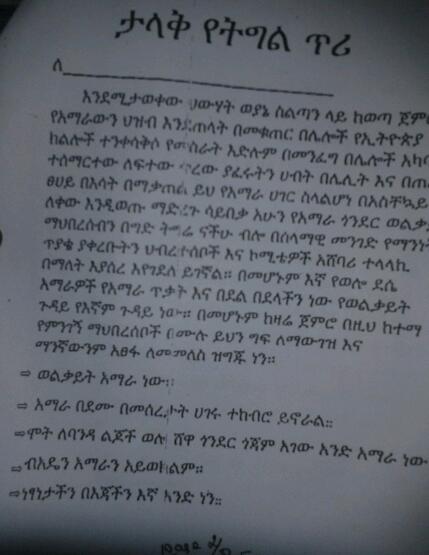 ታላቅ የትግል ጥሪ
ለ
እንደሚታወቀው ህውሃት ወያኔ ስልጣን ላይ ከወጣ ጀምሮ
የአማራውን ህዝብ እንደጠላት በመቁጠር በሌሎች የኢትዮጵያ
ከልሎች ተንቀሳቅሶ የመስራት እድሉም በመንፈግ በሌሎች አካባ
ተሰማርተው ለፍተው ጥረው ያፈሩትን ሀብት በሌሊት እና በጠራ
ፀሀይ በእሳት በማቃጠል ይህ የአማራ ሀገር ስላልሆነ በአስቸኳይ
ለቀው እንዲወጡ ማድረጉ ሳይበቃ አሁን የአማራ ጎንደር ወልቃ
ማህበረሰብን በግድ ትግሬ ናችሁ ብሎ በሰላማዊ መንገድ የማንነት
ጥያቄ ያቀረቡትን ህብረተሰቦች እና ኮሚቴዎች አሸባሪ ተላላኪ
በማለት እያሰረ እየገደለ ይገኛል። በመሆኑም እኛ የወሎ ደሴ
አማራዎች የአማራ ጥቃት እና በደል በደላችን ነው የወልቃይት
ጉዳይ የእኛም ጉዳይ ነው። በመሆኑም ከዛሬ ጀምሮ በዚህ ከተማ
የምንገኝ ማህበረሰቦች በሙሉ ይህን ግፍ ለማውገዝ እና
ማንኛውንም አፀፋ ለመመለስ ዝግጁ ነን።
⇨ ወልቃይት አማራ ነው።
⇨ አማራ በደሙ በመሰረታት ሀገሩ ተከብሮ ይኖራል።
⇨ሞት ለባንዳ ልጆች ወሎ ሸዋ ጎንደር ጎጃም አገው አንድ አማራ ነው
⇨ብአዴን አማራን አይወክልም።
⇨ነፃነታችን በእጃችን እኛ አንድ ነን።